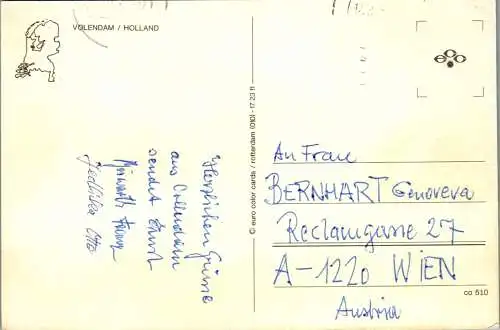 VOLENDAM / HOLLAND
Herzlichen Grüsse
aus Volendam
sendet Ernst
Otto
© euro color cards / rotterdam (010) - 17 23 11
An Frau
BERNHART Genoveva
Reclamgasse 27
A-1220 WIEN
Austria
ca 510